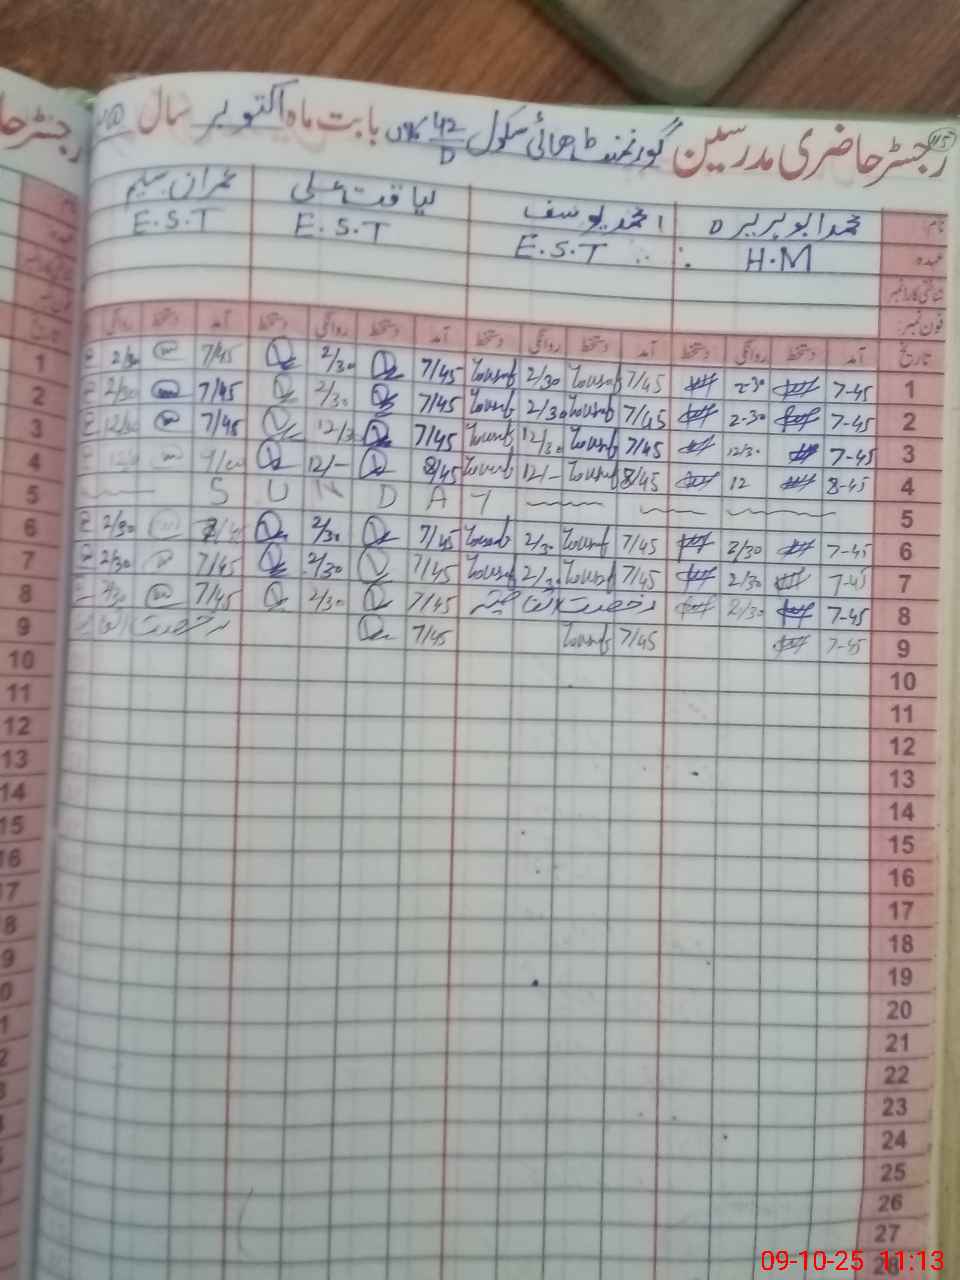 رجسٹر حاضری مدرسین گورنمنٹ ہائی سکول 42/D کلاں بابت ماہ اکتوبر سال
نام: محمد ابوہریرہ احمد یوسف لیاقت علی عمران سلیم
عہدہ H.M E.S.T E.S.T E.S.T
شناختی کارڈ نمبر
فون نمبر:
تاریخ آمد دستخط روانگی دستخط آمد دستخط روانگی دستخط آمد دستخط روانگی دستخط آمد دستخط روانگی
1 7-45 2-30 7/45 Yousuf 2/30 Yousuf 7/45 2/30 7/45 2/30 1
2 7-45 2-30 7/45 Yousuf 2/30 Yousuf 7/45 2/30 7/45 2/30 2
3 7-45 12/30 7/45 Yousuf 12/30 Yousuf 7/45 12/30 7/45 12/30 3
4 8-45 12 8/45 Yousuf 12/- Yousuf 8/45 12/- 4
5 S U N D A Y 5
6 7-45 2/30 7/45 Yousuf 2/30 Yousuf 7/45 2/30 7/45 2/30 6
7 7-45 2/30 7/45 Yousuf 2/30 Yousuf 7/45 2/30 7/45 2/30 7
8 7-45 2/30 رخصت اتفاقیہ 7/45 2/30 7/45 2/30 8
9 7-45 7/45 Yousuf 7/45 رخصت 9
10 10
11 11
12 12
13 13
14 14
15 15
16 16
17 17
18
19
20
21
22
23
24
25
26
27
28
09-10-25 11:13